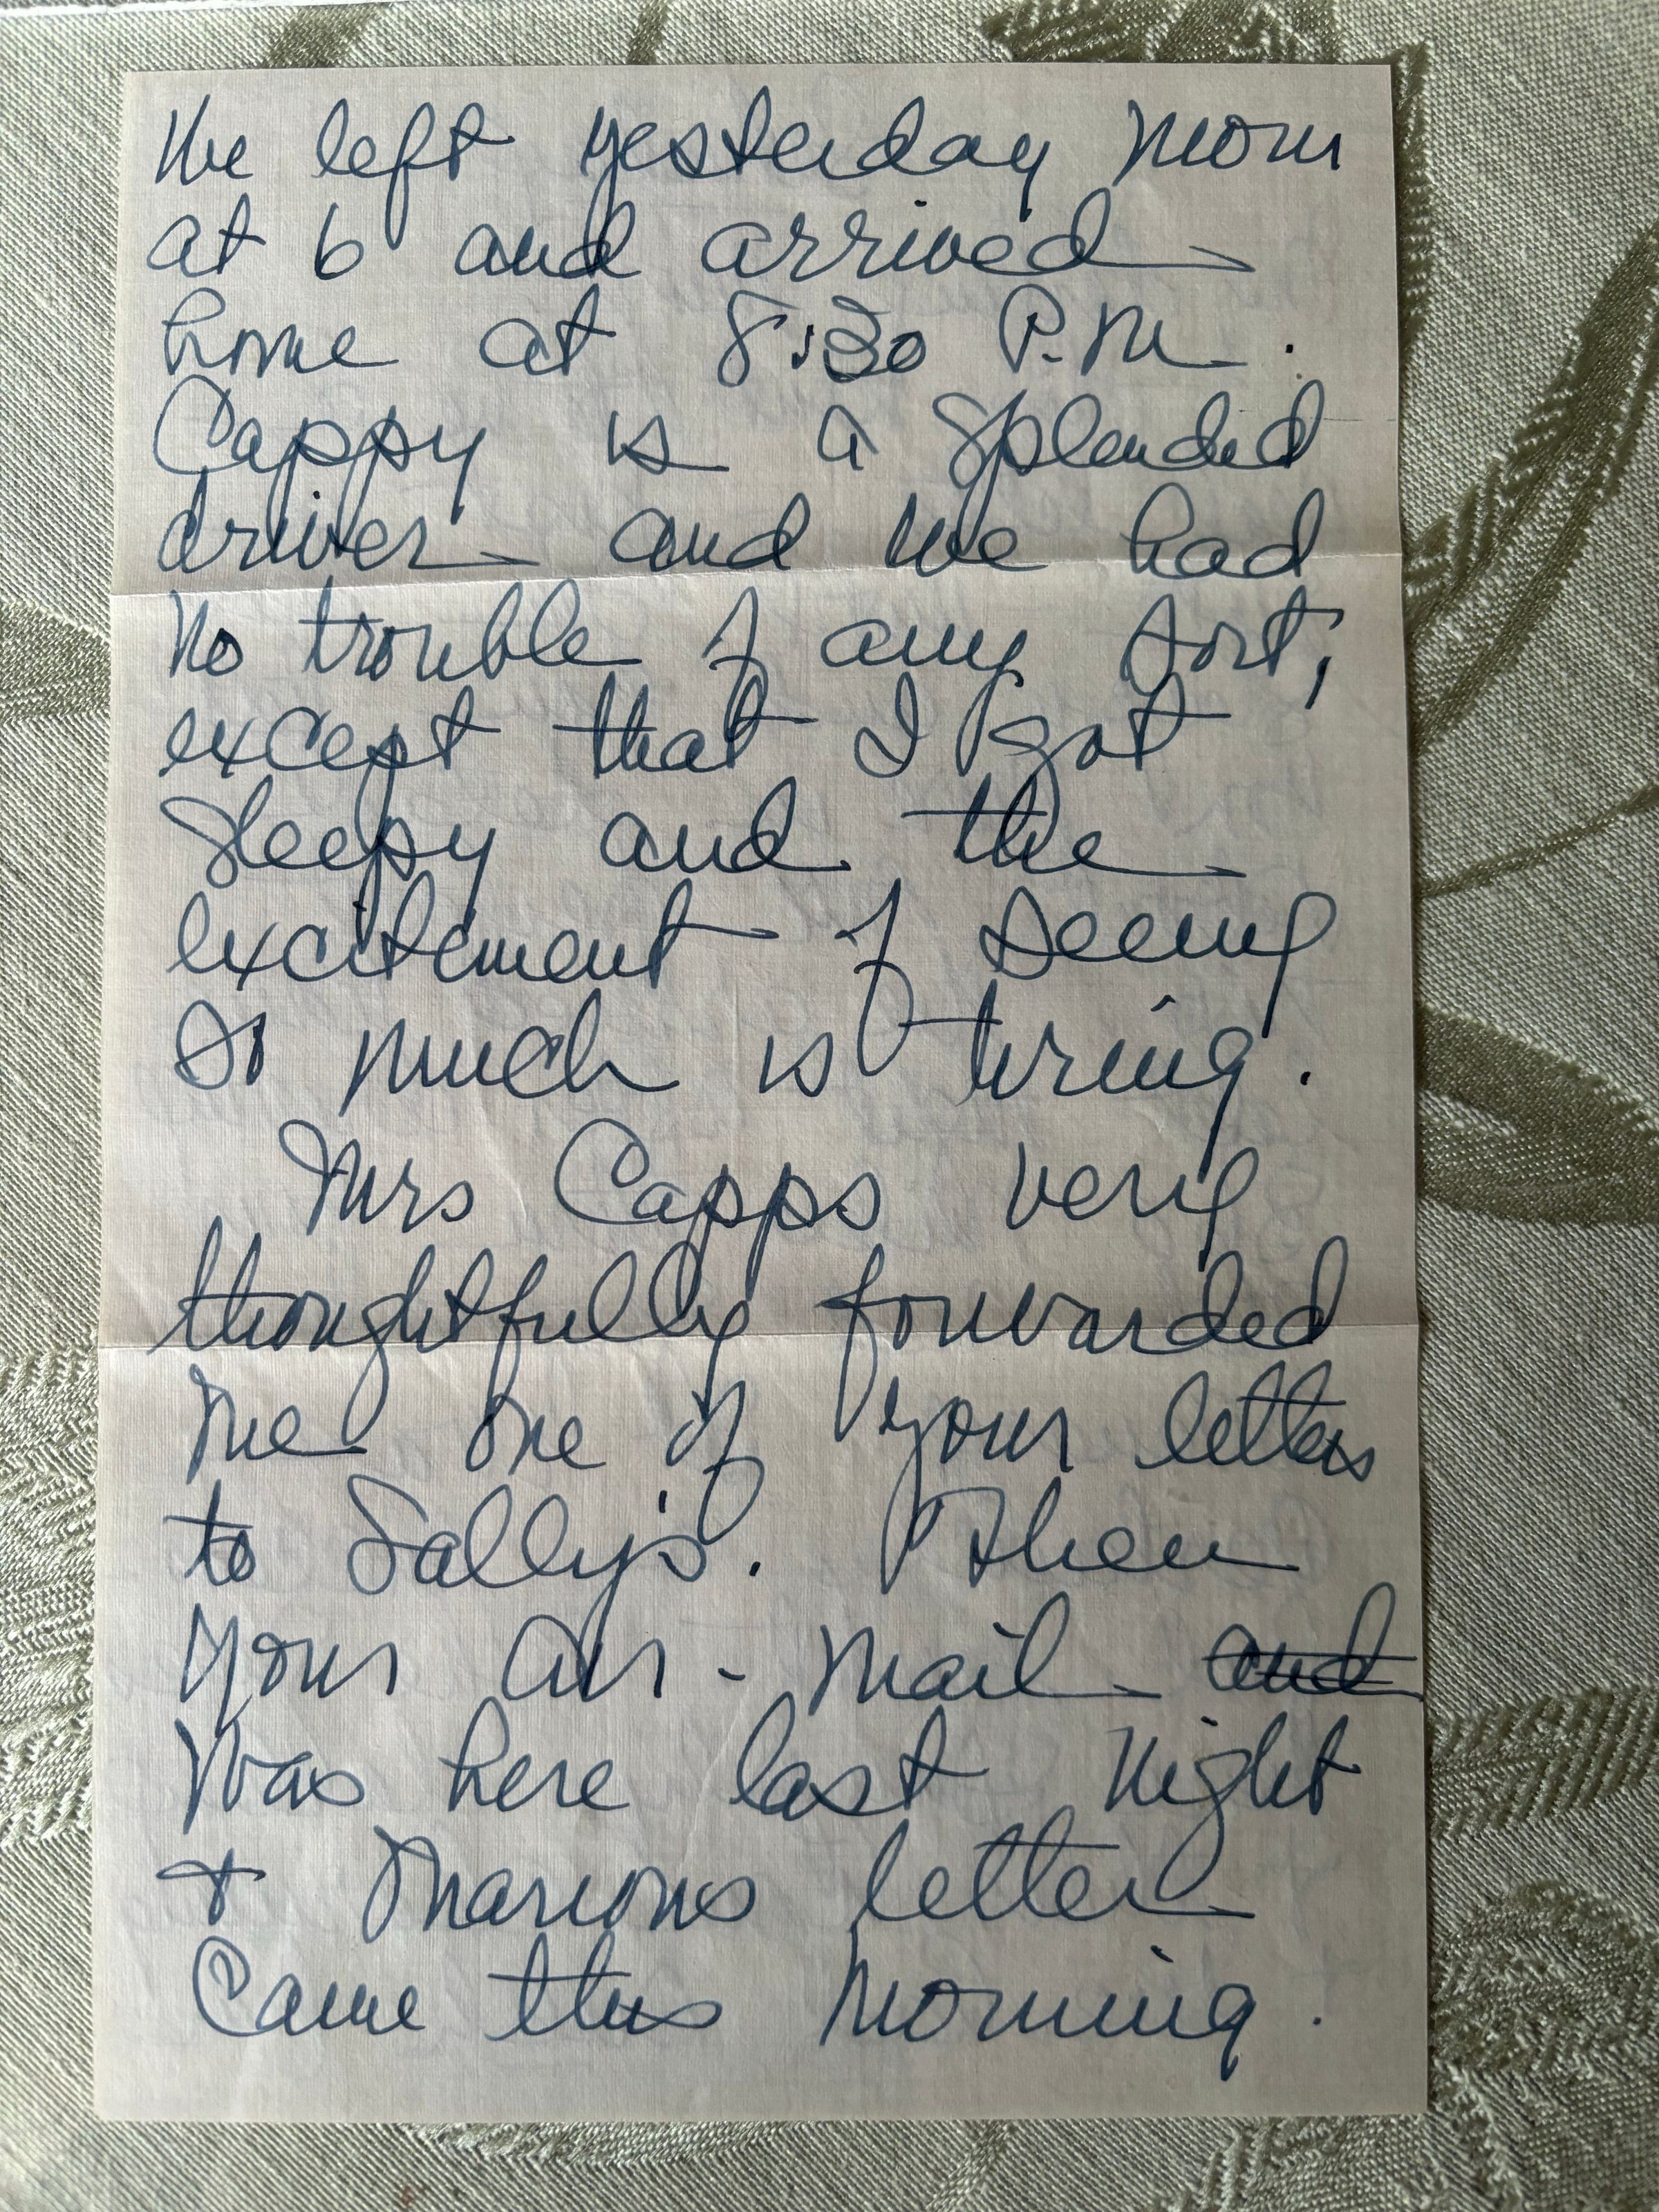 We left yesterday morn
at 6 and arrived
home at 8:30 P.M.
Cappy is a splended
driver and we had
no trouble of any sort,
except that I got
sleepy and the
excitement of seeing
so much is tiring.
Mrs Capps very
thoughtfully forwarded
me one of your letters
to Sally's. Then
your air-mail and
was here last night
+ Marions letter
came this morning.